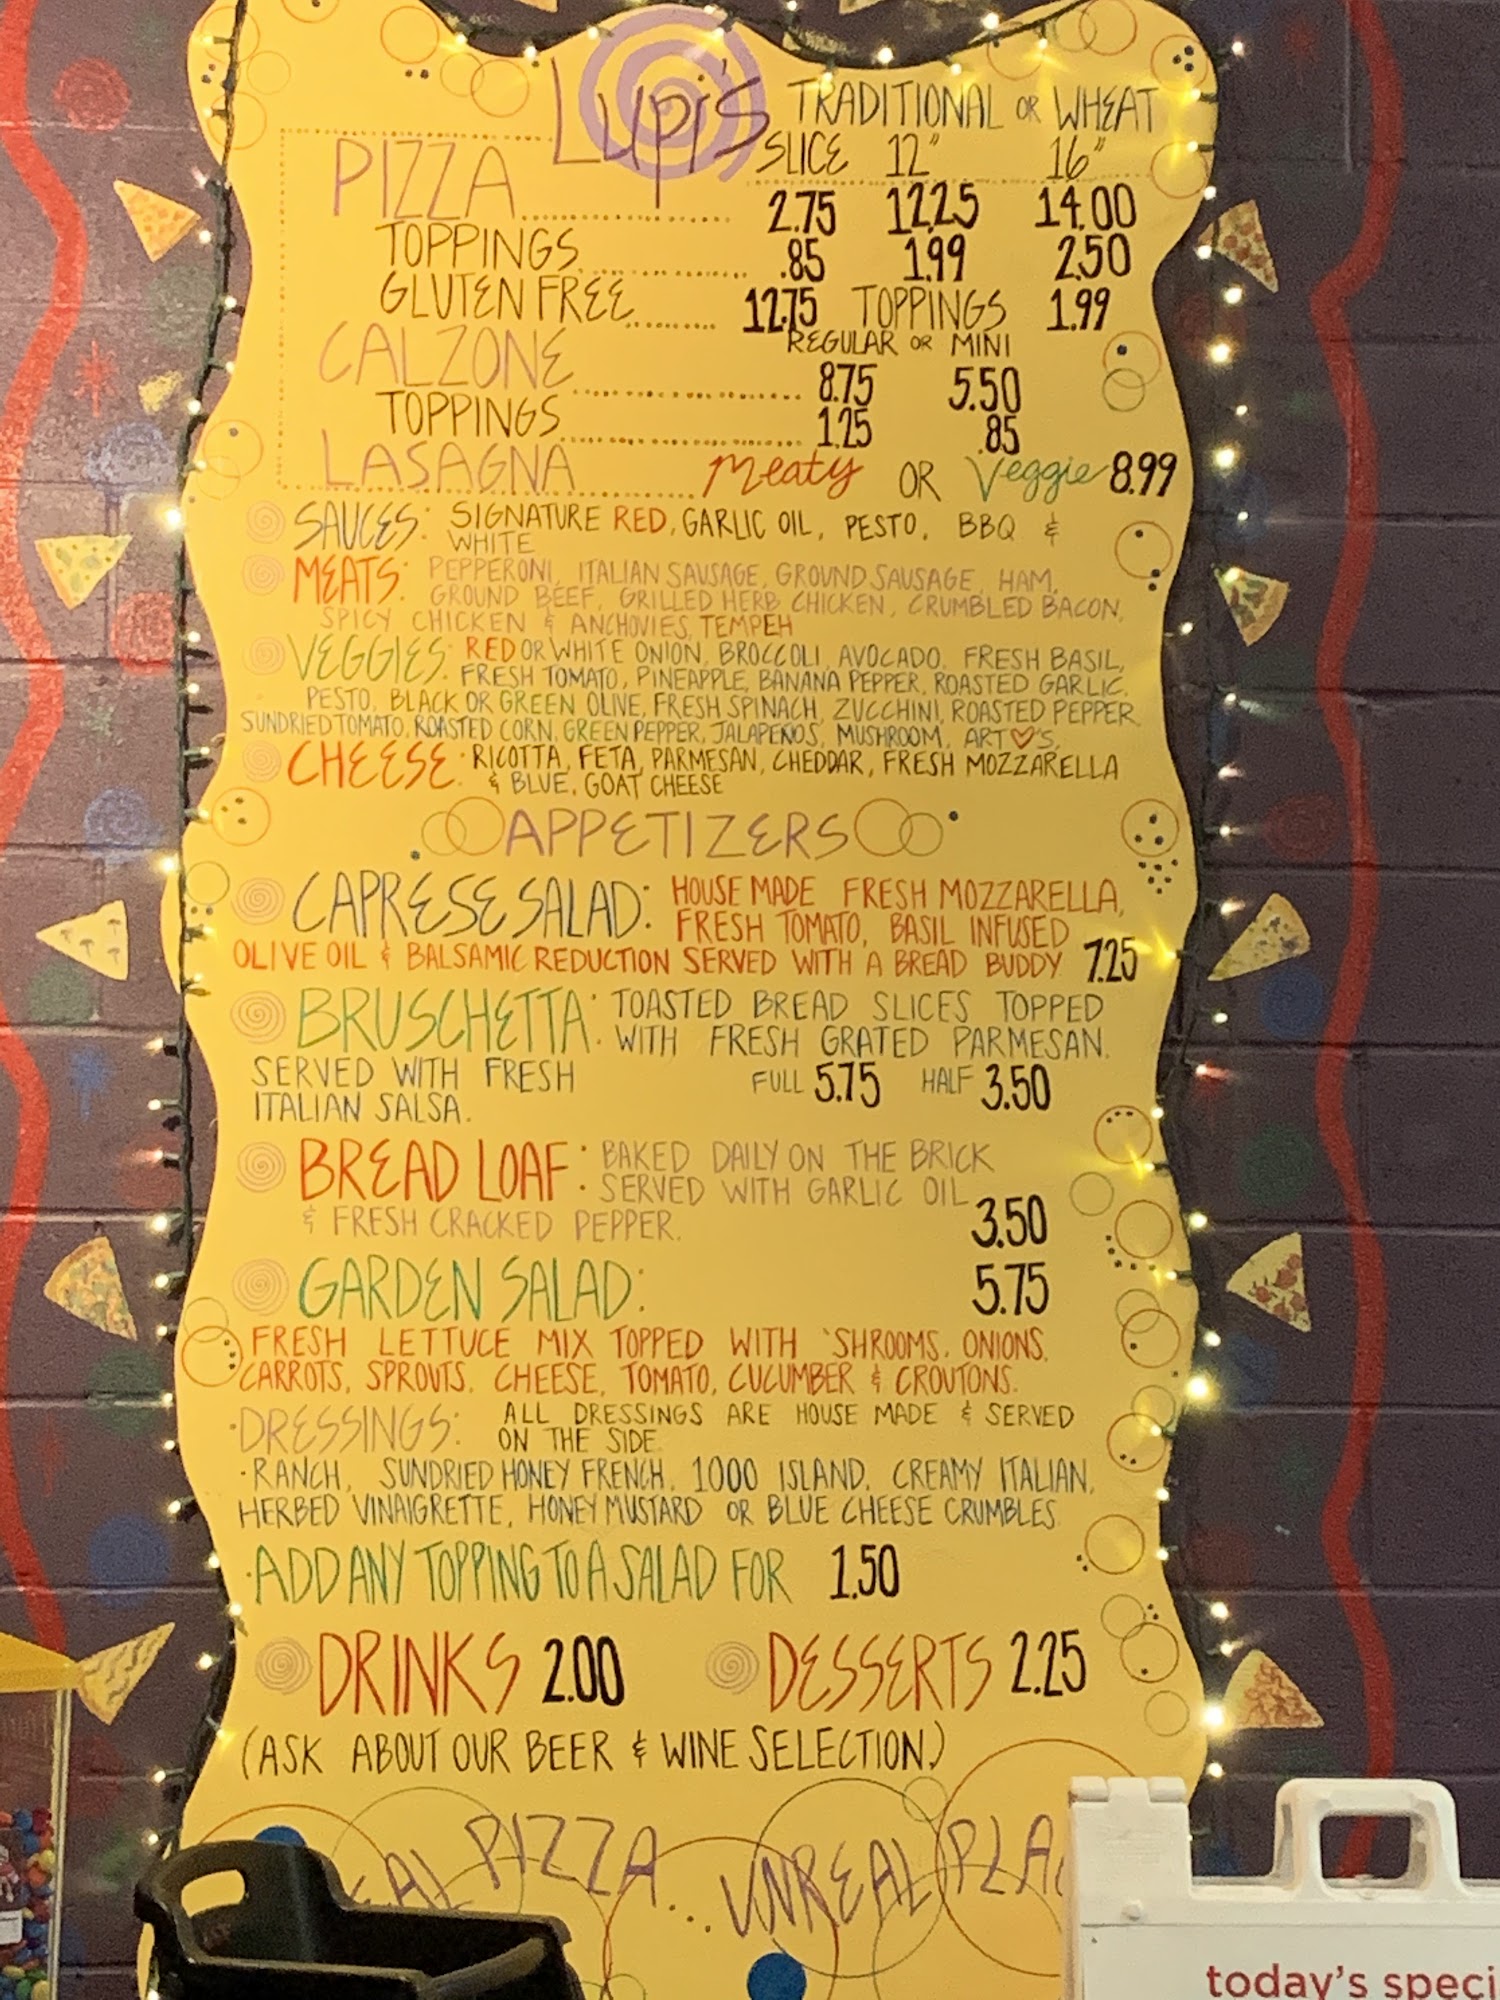 Lupi's
TRADITIONAL OR WHEAT
SLICE 12" 16"
PIZZA 2.75 12.25 14.00
TOPPINGS .85 1.99 2.50
GLUTEN FREE 12.75 TOPPINGS 1.99
REGULAR OR MINI
CALZONE 8.75 5.50
TOPPINGS 1.25 .85
LASAGNA Meaty OR Veggie 8.99
SAUCES: SIGNATURE RED, GARLIC OIL, PESTO, BBQ &
WHITE
MEATS: PEPPERONI, ITALIAN SAUSAGE, GROUND SAUSAGE, HAM,
GROUND BEEF, GRILLED HERB CHICKEN, CRUMBLED BACON,
SPICY CHICKEN & ANCHOVIES, TEMPEH
VEGGIES: RED OR WHITE ONION, BROCCOLI, AVOCADO, FRESH BASIL,
FRESH TOMATO, PINEAPPLE, BANANA PEPPER, ROASTED GARLIC,
PESTO, BLACK OR GREEN OLIVE, FRESH SPINACH, ZUCCHINI, ROASTED PEPPER
SUNDRIED TOMATO, ROASTED CORN, GREEN PEPPER, JALAPEÑOS, MUSHROOM, ART ♡'S,
CHEESE: RICOTTA, FETA, PARMESAN, CHEDDAR, FRESH MOZZARELLA
& BLUE, GOAT CHEESE
APPETIZERS
CAPRESE SALAD: HOUSE MADE FRESH MOZZARELLA,
FRESH TOMATO, BASIL INFUSED
OLIVE OIL & BALSAMIC REDUCTION SERVED WITH A BREAD BUDDY 7.25
BRUSCHETTA: TOASTED BREAD SLICES TOPPED
WITH FRESH GRATED PARMESAN.
SERVED WITH FRESH FULL 5.75 HALF 3.50
ITALIAN SALSA.
BREAD LOAF: BAKED DAILY ON THE BRICK
SERVED WITH GARLIC OIL
& FRESH CRACKED PEPPER. 3.50
GARDEN SALAD: 5.75
FRESH LETTUCE MIX TOPPED WITH 'SHROOMS, ONIONS,
CARROTS, SPROUTS, CHEESE, TOMATO, CUCUMBER & CROUTONS.
·DRESSINGS: ALL DRESSINGS ARE HOUSE MADE & SERVED
ON THE SIDE
·RANCH, SUNDRIED HONEY FRENCH, 1000 ISLAND, CREAMY ITALIAN,
HERBED VINAIGRETTE, HONEY MUSTARD OR BLUE CHEESE CRUMBLES
·ADD ANY TOPPING TO A SALAD FOR 1.50
DRINKS 2.00 DESSERTS 2.25
(ASK ABOUT OUR BEER & WINE SELECTION.)
PIZZA... UNREAL
today's